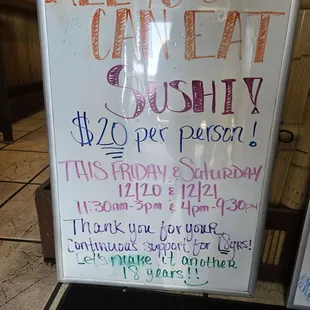 ALL YOU
CAN EAT
SUSHI!
$20 per person!
THIS FRIDAY & SATURDAY
12/20 & 12/21
11:30AM-3PM & 4PM-9:30PM
Thank you for your
continuous support for 18yrs!
Let's make it another
18 years!!